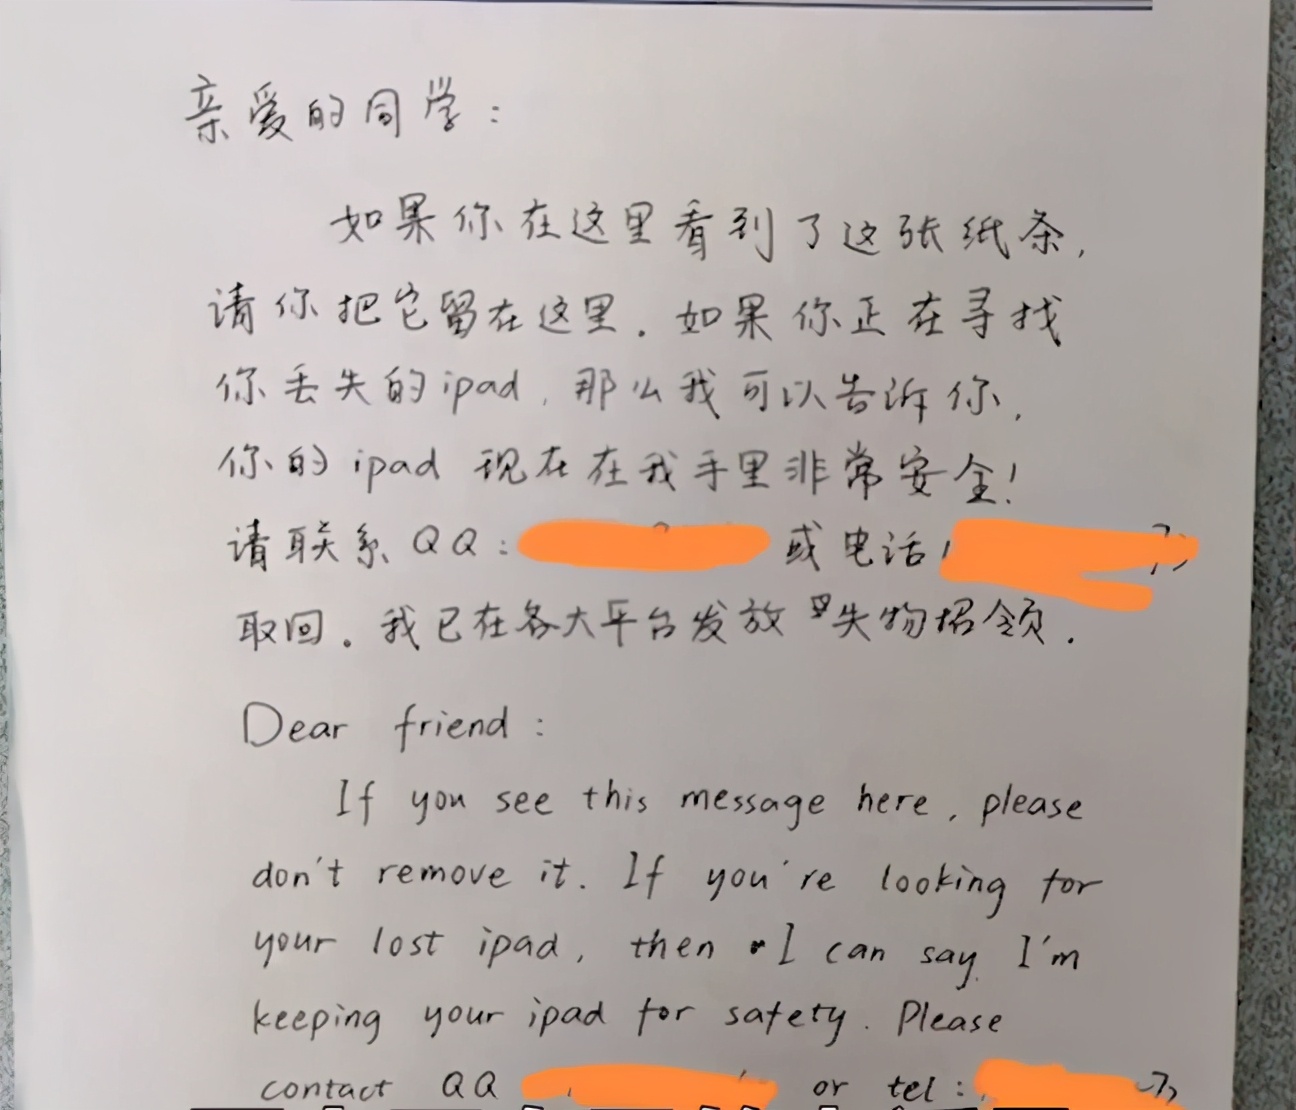 亲爱的同学：
如果你在这里看到了这张纸条，
请你把它留在这里．如果你正在寻找
你丢失的ipad，那么我可以告诉你，
你的ipad 现在在我手里非常安全！
请联系QQ： 或电话
取回．我已在各大平台发放失物招领．
Dear friend：
If you see this message here, please
don't remove it. If you're looking for
your lost ipad, then I can say I'm
keeping your ipad for safety. Please
contact QQ or tel: